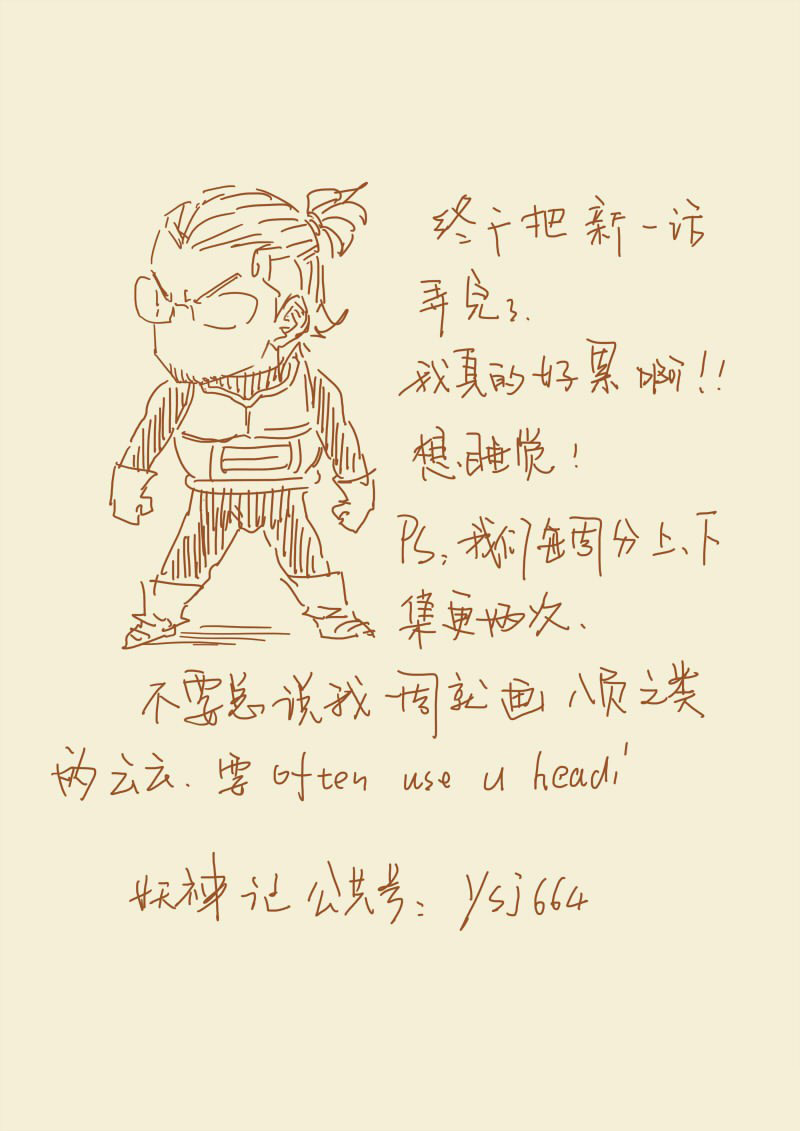 终于把新一话
弄完了.
我真的好累啊!!
想睡觉!
PS:我们每周分上、下
集更两次、
不要总说我一周就画八页之类
的云云.要often use u head!
妖神记公共号:ysj664